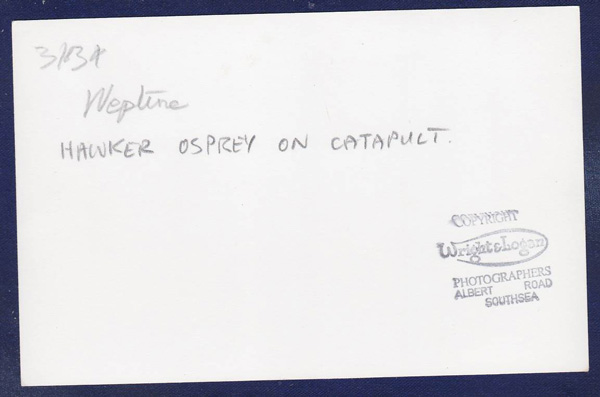 Neptune
HAWKER OSPREY ON CATAPULT.
COPYRIGHT
Wright & Logan
PHOTOGRAPHERS
ALBERT ROAD
SOUTHSEA